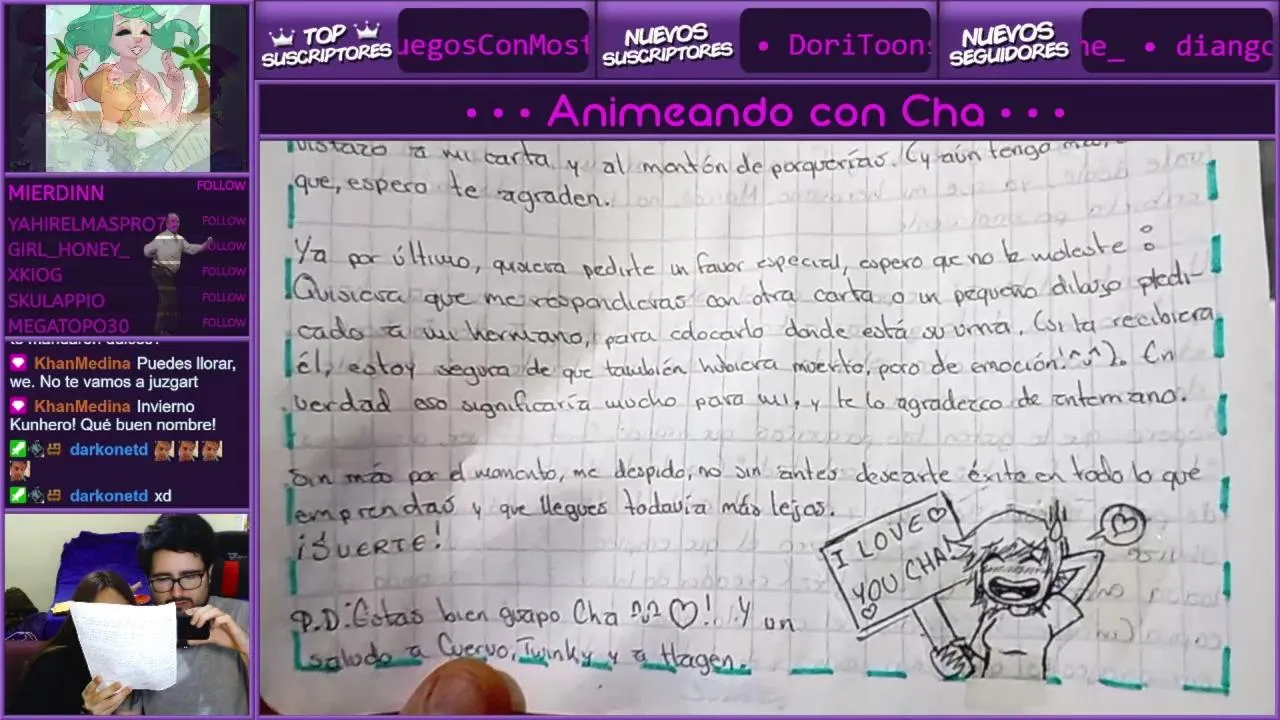 TOP SUSCRIPTORES
uegosConMost
NUEVOS SUSCRIPTORES
• DoriToons
NUEVOS SEGUIDORES
ne_ • diango
• • • Animeando con Cha • • •
MIERDINN FOLLOW
YAHIRELMASPRO7 FOLLOW
GIRL_HONEY_ FOLLOW
XKIOG FOLLOW
SKULAPPIO FOLLOW
MEGATOPO30 FOLLOW
KhanMedina Puedes llorar,
we. No te vamos a juzgart
KhanMedina Invierno
Kunhero! Qué buen nombre!
darkonetd
darkonetd xd
vistazo a mi carta y al montón de porquerías. (y aún tengo
que, espero te agraden.
Ya por último, quisiera pedirte un favor especial, espero que no te moleste :
Quisiera que me respondieras con otra carta o un pequeño dibujo
cado a mi hermano, para colocarlo donde está su urna. (si la recibiera
él, estoy segura de que también hubiera muerto, pero de emoción! ^u^). En
verdad eso significaría mucho para mi, y te lo agradezco de antemano.
Sin más por el momento, me despido, no sin antes desearte éxito en todo lo que
emprendas y que llegues todavía más lejos.
¡SUERTE!
P.D: Estas bien guapo Cha ♡! Y un
saludo a Cuervo, Twinky y a Hagen.
I LOVE♡
YOU CHA!
♡